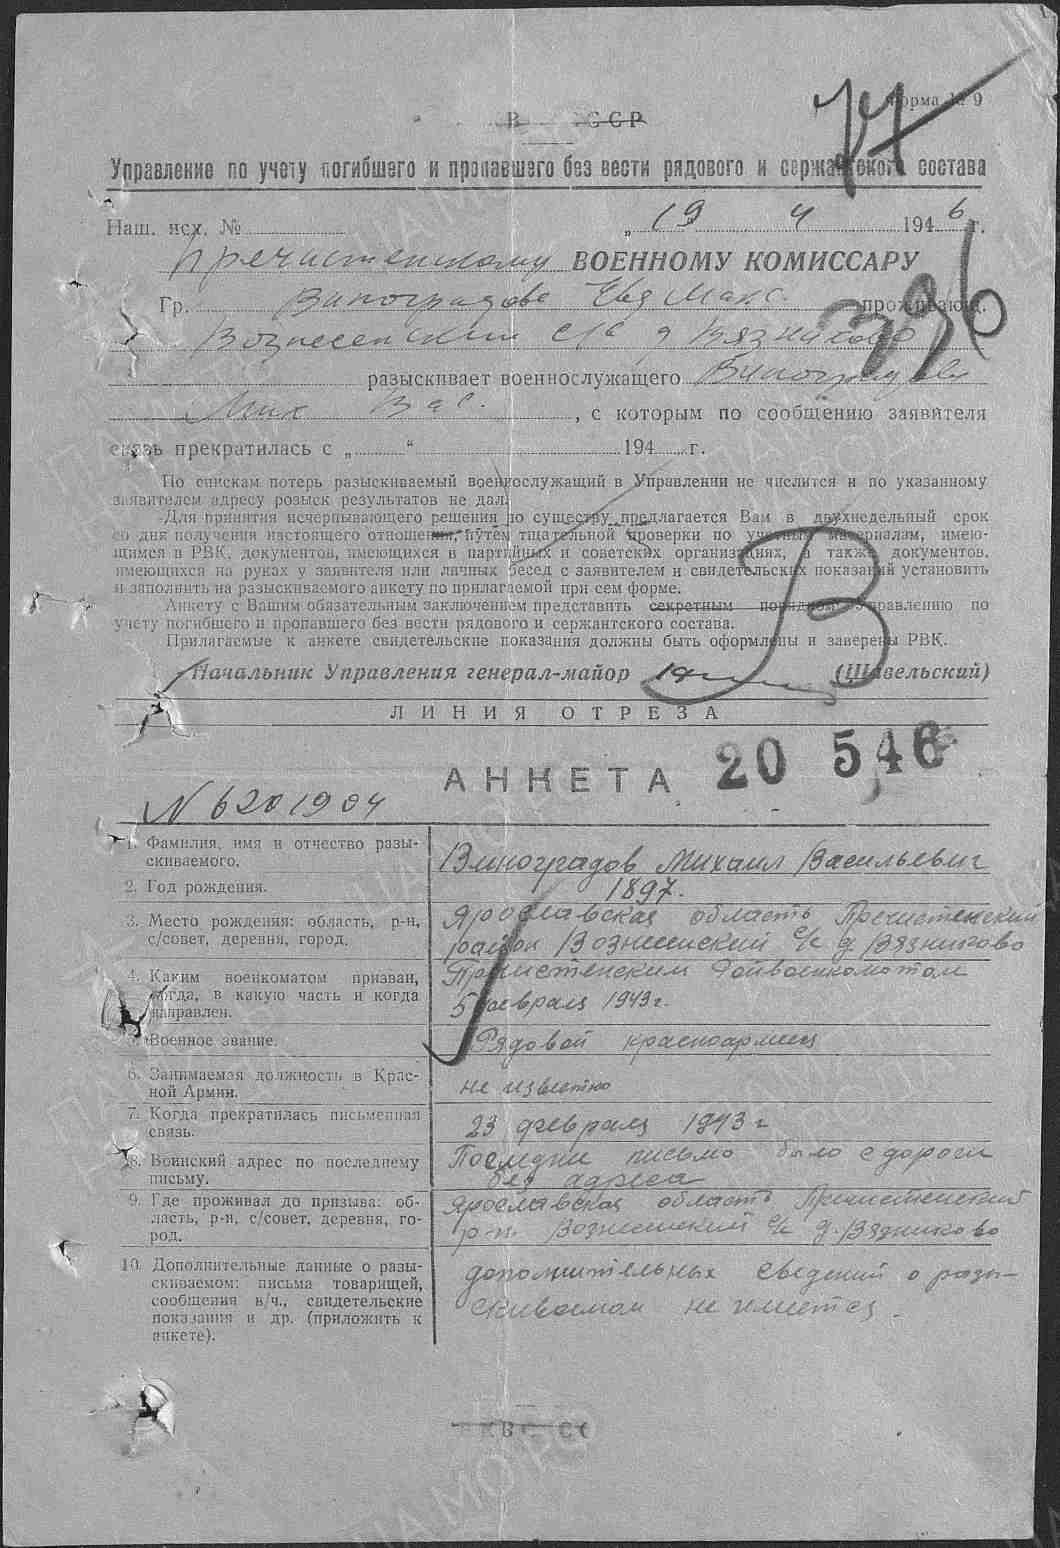 77
Форма № 9
В СССР
Управление по учету погибшего и пропавшего без вести рядового и сержантского состава
Наш. исх. № „19 4 1946 г.
Пречистенскому ВОЕННОМУ КОМИССАРУ
Гр. Виноградова Евд Макс. проживающ.
Вознесенский с/с д Вязниково
разыскивает военнослужащего Виноградова
Мих Вас. , с которым по сообщению заявителя
связь прекратилась с „ “ 194 г.
По спискам потерь разыскиваемый военнослужащий в Управлении не числится и по указанному
заявителем адресу розыск результатов не дал.
Для принятия исчерпывающего решения по существу предлагается Вам в двухнедельный срок
со дня получения настоящего отношения, путем тщательной проверки по учетным материалам, имею-
щимся в РВК, документов, имеющихся в партийных и советских организациях, а также документов,
имеющихся на руках у заявителя или личных бесед с заявителем и свидетельских показаний установить
и заполнить на разыскиваемого анкету по прилагаемой при сем форме.
Анкету с Вашим обязательным заключением представить секретным порядком Управлению по
учету погибшего и пропавшего без вести рядового и сержантского состава.
Прилагаемые к анкете свидетельские показания должны быть оформлены и заверены РВК.
В
Начальник Управления генерал-майор (Шавельский)
ЛИНИЯ ОТРЕЗА
АНКЕТА 20 546
N 6201904
1. Фамилия, имя и отчество разы-
скиваемого.
Виноградов Михаил Васильевич
2. Год рождения.
1897.
3. Место рождения: область, р-н,
с/совет, деревня, город.
Ярославская область Пречистенский
район Вознесенский с/с д Вязниково
4. Каким военкоматом призван,
когда, в какую часть и когда
направлен.
Пречистенским Райвоенкоматом
5 февраля 1943 г.
5. Военное звание.
Рядовой красноармеец
6. Занимаемая должность в Крас-
ной Армии.
не известно
7. Когда прекратилась письменная
связь.
23 февраля 1943 г
8. Воинский адрес по последнему
письму.
Последнии письмо было с дороги
без адреса
9. Где проживал до призыва: об-
ласть, р-н, с/совет, деревня, го-
род.
Ярославская область Пречистенский
р-н. Вознесенский с/с д. Вязниково
10. Дополнительные данные о разы-
скиваемом: письма товарищей,
сообщения в/ч., свидетельские
показания и др. (приложить к
анкете).
дополнительных сведений о разы-
скиваемом не имеется